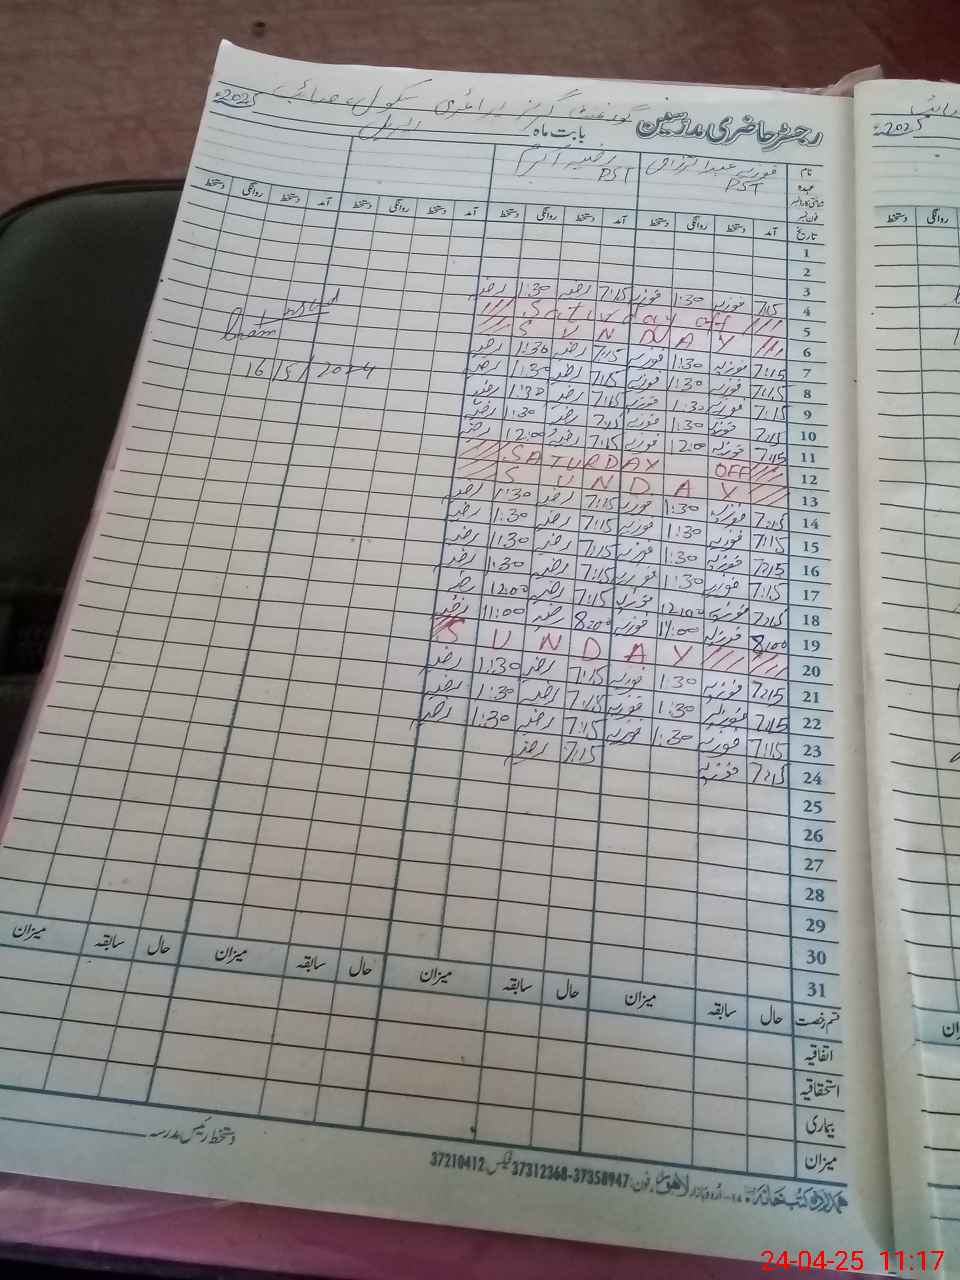 رجسٹر حاضری مدرسین گورنمنٹ گرلز پرائمری سکول
بابت ماہ اپریل 2025ء
نام فوزیہ عبدالرزاق رضیہ اکرم
عہدہ PST PST
شناختی کارڈ نمبر
فون نمبر
تاریخ آمد دستخط روانگی دستخط آمد دستخط روانگی دستخط آمد دستخط روانگی دستخط آمد دستخط روانگی دستخط
1
2
3
4 7:15 فوزیہ 1:30 فوزیہ 7:15 رضیہ 1:30 رضیہ
5 Saturday off
6 SUNDAY
7 7:15 فوزیہ 1:30 فوزیہ 7:15 رضیہ 1:30 رضیہ
8 7:15 فوزیہ 1:30 فوزیہ 7:15 رضیہ 1:30 رضیہ
9 7:15 فوزیہ 1:30 فوزیہ 7:15 رضیہ 1:30 رضیہ
10 7:15 فوزیہ 1:30 فوزیہ 7:15 رضیہ 1:30 رضیہ
11 7:15 فوزیہ 12:00 فوزیہ 7:15 رضیہ 12:00 رضیہ
12 SATURDAY OFF
13 SUNDAY
14 7:15 فوزیہ 1:30 فوزیہ 7:15 رضیہ 1:30 رضیہ
15 7:15 فوزیہ 1:30 فوزیہ 7:15 رضیہ 1:30 رضیہ
16 7:15 فوزیہ 1:30 فوزیہ 7:15 رضیہ 1:30 رضیہ
17 7:15 فوزیہ 1:30 فوزیہ 7:15 رضیہ 1:30 رضیہ
18 7:15 فوزیہ 12:00 فوزیہ 7:15 رضیہ 12:00 رضیہ
19 8:00 فوزیہ 11:00 فوزیہ 8:00 رضیہ 11:00 رضیہ
20 SUNDAY
21 7:15 فوزیہ 1:30 فوزیہ 7:15 رضیہ 1:30 رضیہ
22 7:15 فوزیہ 1:30 فوزیہ 7:15 رضیہ 1:30 رضیہ
23 7:15 فوزیہ 1:30 فوزیہ 7:15 رضیہ 1:30 رضیہ
24 7:15 فوزیہ 7:15 رضیہ
25
26
27
28
29
30
31
قسم رخصت حال سابقہ میزان حال سابقہ میزان حال سابقہ میزان حال سابقہ میزان
اتفاقیہ
استحقاقیہ
بیماری
میزان
دستخط رئیس مدرسہ
ہمدرد کتب خانہ اردو بازار لاہور فون: 37358947-37312368 فیکس: 37210412
2025ء
دستخط
24-04-25 11:17